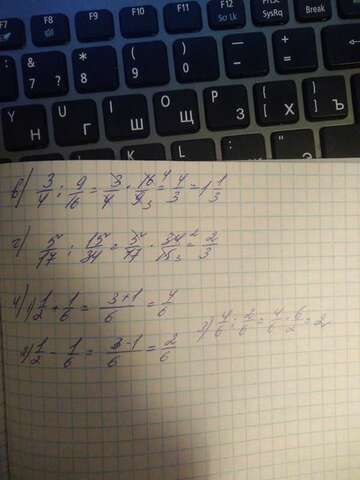 F7 F8 F9 F10 F11 F12 Scr Lk SysRq Break
& 7 ? * 8 ( 9 ) 0 _ - + =
Г Ш Щ З { [ Х } ] Ъ
в) 3/4 : 9/16 = 3/4 · 16/9 = 4/3 = 1 1/3
г) 5/17 : 15/34 = 5/17 · 34/15 = 2/3
4) 1) 1/2 + 1/6 = 3+1/6 = 4/6
2) 1/2 - 1/6 = 3-1/6 = 2/6
3) 4/6 : 2/6 = 4/6 · 6/2 = 2